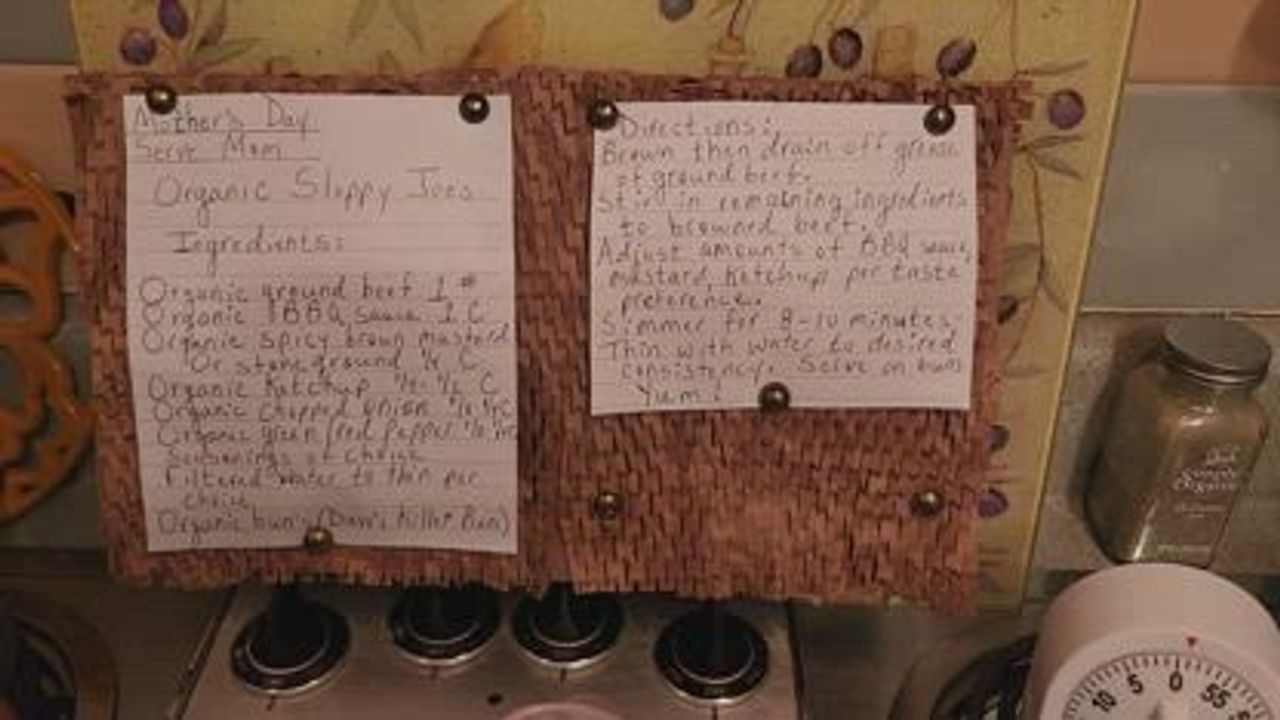 Mother's Day
Serve Mom
Organic Sloppy Joes
Ingredients:
Organic ground beef 1 #
Organic BBQ sauce 1 C
Organic spicy brown mustard
Or stone ground ¼ C
Organic Ketchup ½ C
Organic chopped onion
Organic green/red pepper
Seasonings of choice
Filtered water to thin per
choice
Organic bun's (Dave's Killer Bun)
Directions:
Brown then drain off grease
of ground beef.
Stir in remaining ingredients
to browned beef.
Adjust amounts of BBQ sauce,
mustard, Ketchup per taste
preference.
Simmer for 8-10 minutes.
Thin with water to desired
consistency. Serve on bun
Yum!
Simply
Organic
10 5 0 55